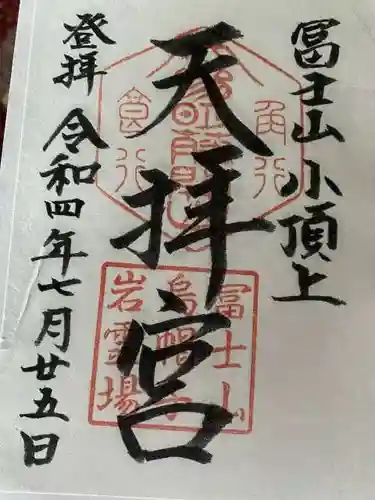 冨士山小頂上
天拝宮
登拝 令和四年七月廿五日
角行
食行
冨士山
烏帽子
岩霊場